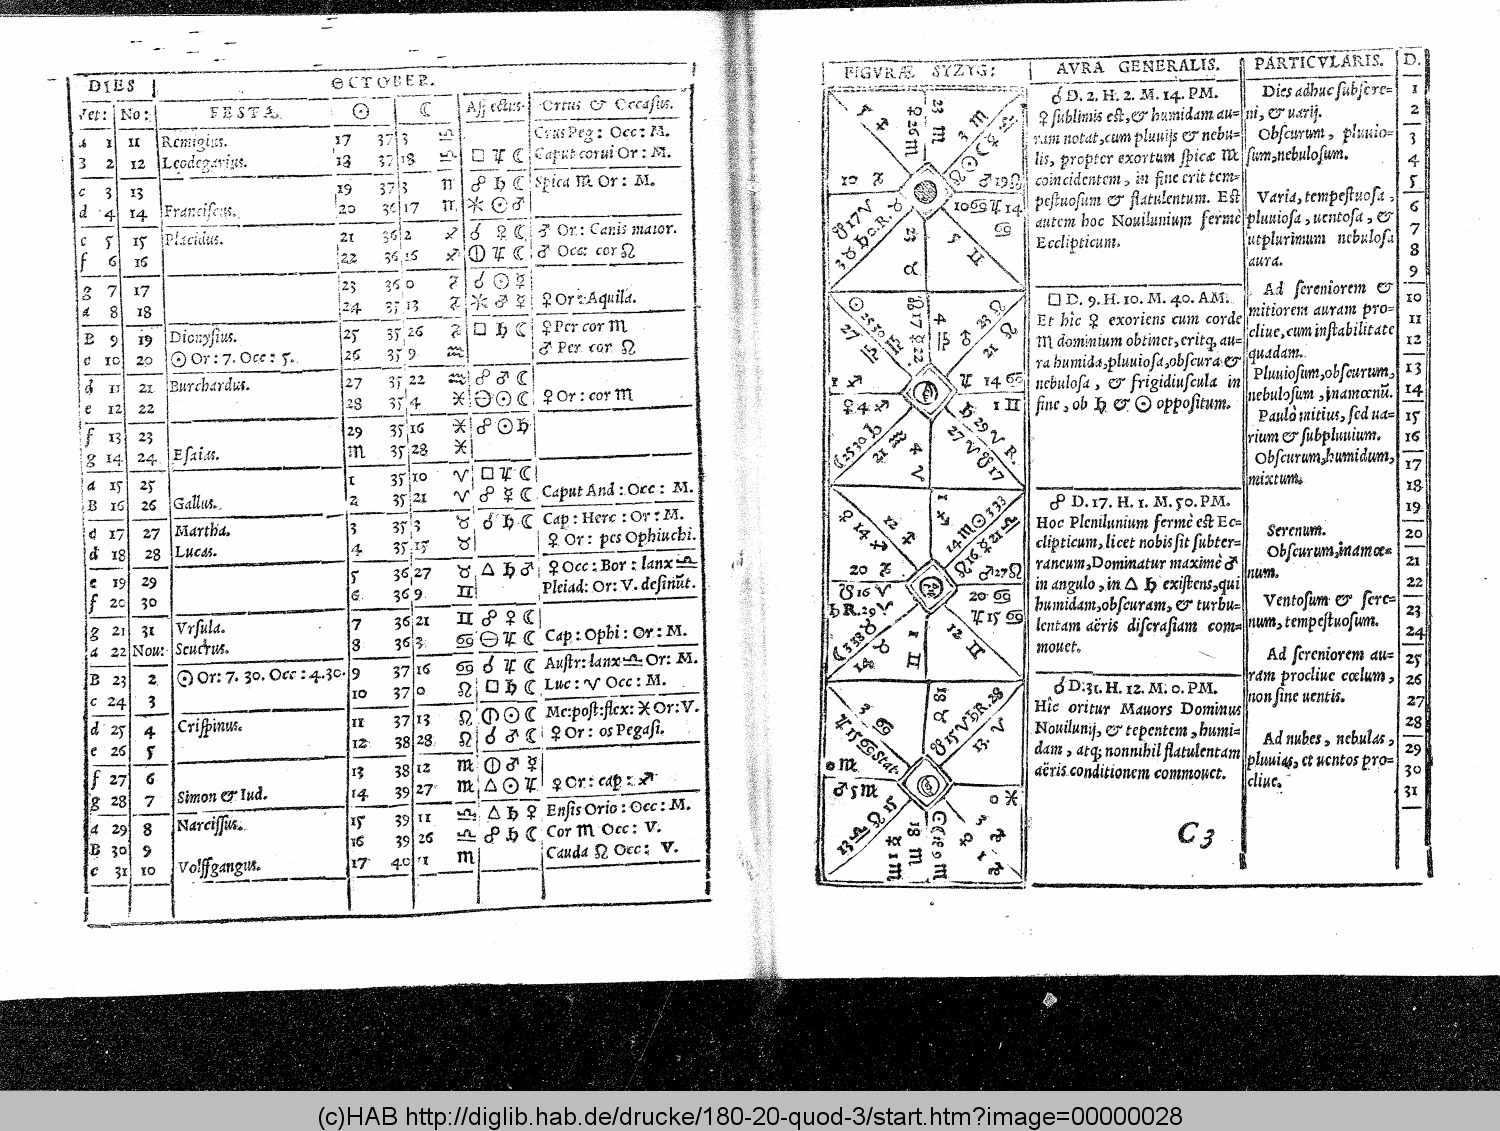 DIES OCTOBER.
Vet: No: FESTA. ☉ ☾ Aspectus. Ortus & Occasus.
A 1 11 Remigius. 17 37 3 ♎ Crus Peg: Occ: M.
3 2 12 Leodegarius. 18 37 18 ♎ □ ♃ ☾ Caput corui Or: M.
c 3 13 19 37 3 ♏ ☍ ♄ ☾ Spica ♍ Or: M.
d 4 14 Franciscus. 20 36 17 ♏ ⚹ ☉ ♂
e 5 15 Placidus. 21 36 2 ♐ ☌ ♀ ☾ ♂ Or: Canis maior.
f 6 16 22 36 16 ♐ ♃ ☾ ♂ Occ: cor ♌
g 7 17 23 36 0 ♑ ☌ ☉ ☿
A 8 18 24 37 13 ♑ ⚹ ♂ ☿ ♀ Or: Aquila.
B 9 19 Dionysius. 25 35 26 ♑ □ ♄ ☾ ♀ Per cor ♏
c 10 20 ☉ Or: 7. Occ: 5. 26 35 9 ♒ ♂ Per cor ♌
d 11 21 Burchardus. 27 35 22 ♒ ☍ ♂ ☾
e 12 22 28 35 4 ♓ ☉ ☾ ♀ Or: cor ♏
f 13 23 29 35 16 ♓ ☍ ☉ ♄
g 14 24 Esaias. ♏ 35 28 ♓
A 15 25 1 35 10 ♈ □ ♃ ☾
B 16 26 Gallus. 2 35 21 ♈ ☍ ☿ ☾ Caput And: Occ: M.
c 17 27 Martha. 3 35 3 ♉ ☌ ♄ ☾ Cap: Herc: Or: M.
d 18 28 Lucas. 4 35 15 ♉ ♀ Or: pes Ophiuchi.
e 19 29 5 36 27 ♉ △ ♄ ♂ ♀ Occ: Bor: lanx ♎
f 20 30 6 36 9 ♊ Pleiad: Or: V. desinūt.
g 21 31 Vrsula. 7 36 21 ♊ ☍ ♀ ☾
A 22 Nou: Seuerus. 8 36 3 ♋ ♃ ☾ Cap: Ophi: Or: M.
B 23 2 ☉ Or: 7. 30. Occ: 4.30. 9 37 16 ♋ ☌ ♃ ☾ Austr: lanx ♎ Or: M.
c 24 3 10 37 0 ♌ □ ♄ ☾ Luc: ♈ Occ: M.
d 25 4 Crispinus. 11 37 13 ♌ ☉ ☾ Me: post: flex: ♓ Or: V.
e 26 5 12 38 28 ♌ ☌ ♂ ☾ ♀ Or: os Pegasi.
f 27 6 13 38 12 ♍ ♂ ☿
g 28 7 Simon & Iud. 14 39 27 ♍ △ ☉ ♃ ♀ Or: cap: ♐
A 29 8 Narcissus. 15 39 11 ♎ △ ♄ ♀ Ensis Orio: Occ: M.
B 30 9 16 39 26 ♎ ☍ ♄ ☾ Cor ♏ Occ: V.
c 31 10 Volffgangus. 17 40 11 ♏ Cauda ♌ Occ: V.
FIGVRÆ SYZYG: AVRA GENERALIS. PARTICVLARIS. D.
☌ D. 2. H. 2. M. 14. PM.
♀ sublimis est, & humidam au=
ram notat, cum pluuijs & nebu=
lis, propter exortum spicæ ♍
coincidentem, in fine erit tem=
pestuosum & flatulentum. Est
autem hoc Nouilunium fermè
Ecclipticum.
□ D. 9. H. 10. M. 40. AM.
Et hîc ♀ exoriens cum corde
♏ dominium obtinet, critq, au=
ra humida, pluuiosa, obscura &
nebulosa, & frigidiuscula in
fine, ob ♄ & ☉ oppositum.
☍ D. 17. H. 1. M. 50. PM.
Hoc Plenilunium fermè est Ec=
clipticum, licet nobis sit subter=
raneum, Dominatur maximè ♂
in angulo, in △ ♄ existens, qui
humidam, obscuram, & turbu=
lentam aëris discrasiam com=
mouet.
☌ D. 31. H. 12. M. 0. PM.
Hîc oritur Mauors Dominus
Nouilunij, & tepentem, humi=
dam, atq; nonnihil flatulentam
aëris conditionem commouet.
Dies adhuc subsere=
ni, & uarij.
Obscurum, pluuio=
sum, nebulosum.
Varia, tempestuosa,
pluuiosa, uentosa, &
utplurimum nebulosa
aura.
Ad sereniorem &
mitiorem auram pro=
cliue, cum instabilitate
quadam.
Pluuiosum, obscurum,
nebulosum, inamœnū.
Paulò mitius, sed ua=
rium & subpluuium.
Obscurum, humidum,
mixtum.
Serenum.
Obscurum, inamœ=
num.
Ventosum & sere=
num, tempestuosum.
Ad sereniorem au=
ram procliue cœlum,
non sine uentis.
Ad nubes, nebulas,
pluuias, et uentos pro=
cliue.
1
2
3
4
5
6
7
8
9
10
11
12
13
14
15
16
17
18
19
20
21
22
23
24
25
26
27
28
29
30
31
C 3
(c)HAB http://diglib.hab.de/drucke/180-20-quod-3/start.htm?image=00000028